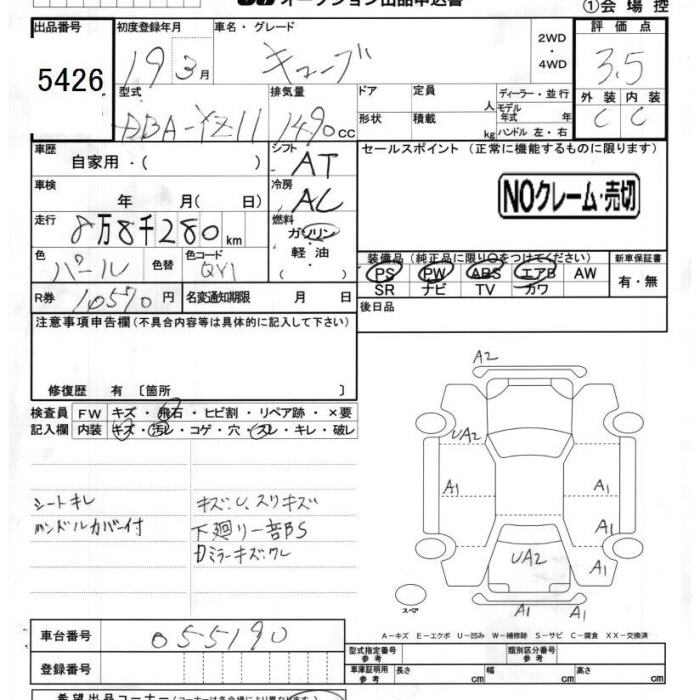 オークション出品申込書
①会場控
出品番号 初度登録年月 車名・グレード 評価点
5426 19 3月 キューブ 2WD・4WD 3.5
型式 排気量 ドア 定員 人 ディーラー・並行 外装 内装
DBA-YZ11 1490cc 形状 積載 kg モデル年式 年 ハンドル 左・右 C C
車歴 自家用・( ) シフト AT セールスポイント(正常に機能するものに限ります)
車検 年 月(日) 冷房 AC NOクレーム・売切
走行 8万8千280km 燃料 ガソリン・軽油・( )
色 パール 色替 色コード QY1 装備品(純正品に限り○をつけてください) 新車保証書
PS PW ABS エアB AW 有・無
SR ナビ TV カワ
R券 10570円 名変通知期限 月 日 後日品
注意事項申告欄(不具合内容等は具体的に記入して下さい)
修復歴 有〔箇所 〕
検査員 FW キズ・飛石・ヒビ割・リペア跡・×要
記入欄 内装 キズ・汚レ・コゲ・穴・スレ・キレ・破レ
シートキレ
ハンドルカバー付
キズ、U、スリキズ
下廻り一部BS
Dミラーキズ、ワレ
A2
UA2
A1 A1
A1
UA2 A1
A1 A1
スペア
A-キズ E-エクボ U-凹み W-補修跡 S-サビ C-腐食 XX-交換済
車台番号 055190 型式指定番号 参考 類別区分番号 参考
登録番号 車庫証明用 参考 長さ cm 幅 cm 高さ cm
希望出品コーナー